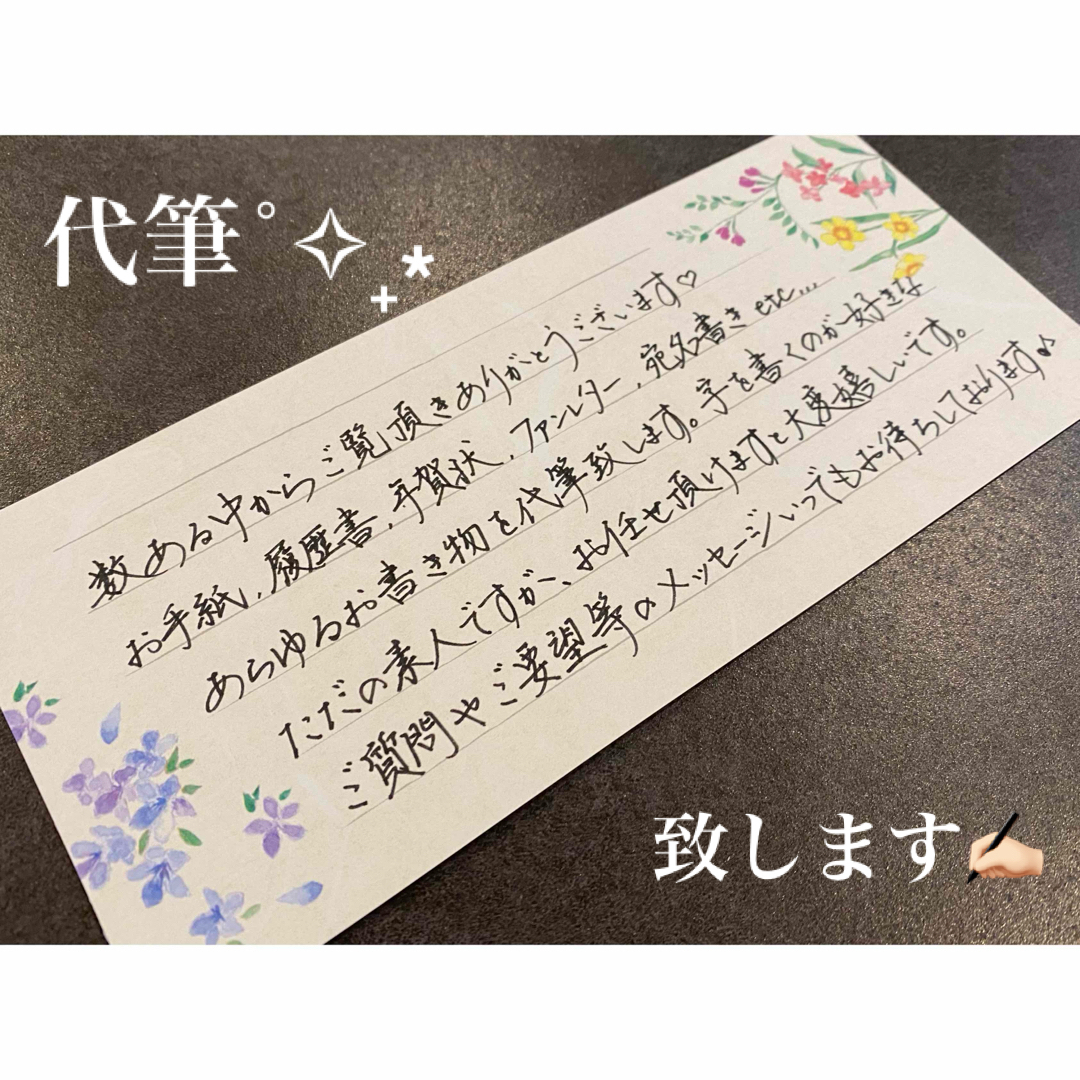 代筆˚✧₊⁎
数ある中からご覧頂きありがとうございます♡
お手紙、履歴書、年賀状、ファンレター、宛名書きetc...
あらゆるお書き物を代筆致します。字を書くのが好きな
ただの素人ですが、お任せ頂けますと大変嬉しいです。
ご質問やご要望等のメッセージいつでもお待ちしております♪
致します✍🏻